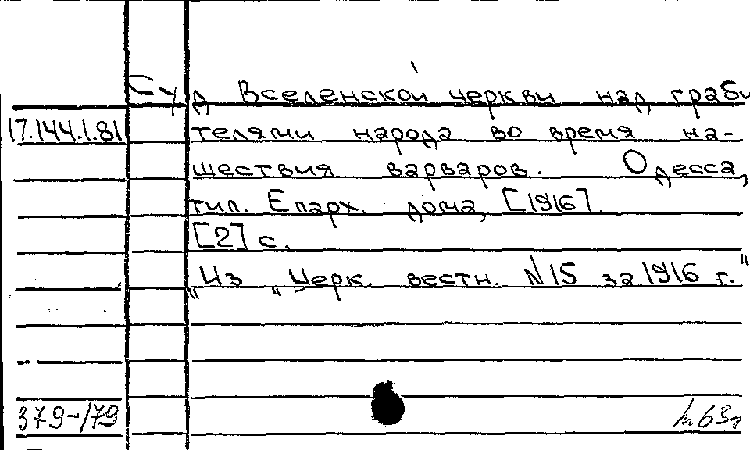 Суд Вселенской церкви над граби
17.144.1.81 телями народа во время на-
шествия варваров. Одесса,
тип. Епарх. дома, [1916].
[2] с.
„Из „Церк. вестн. №15 за 1916 г."
379-/79